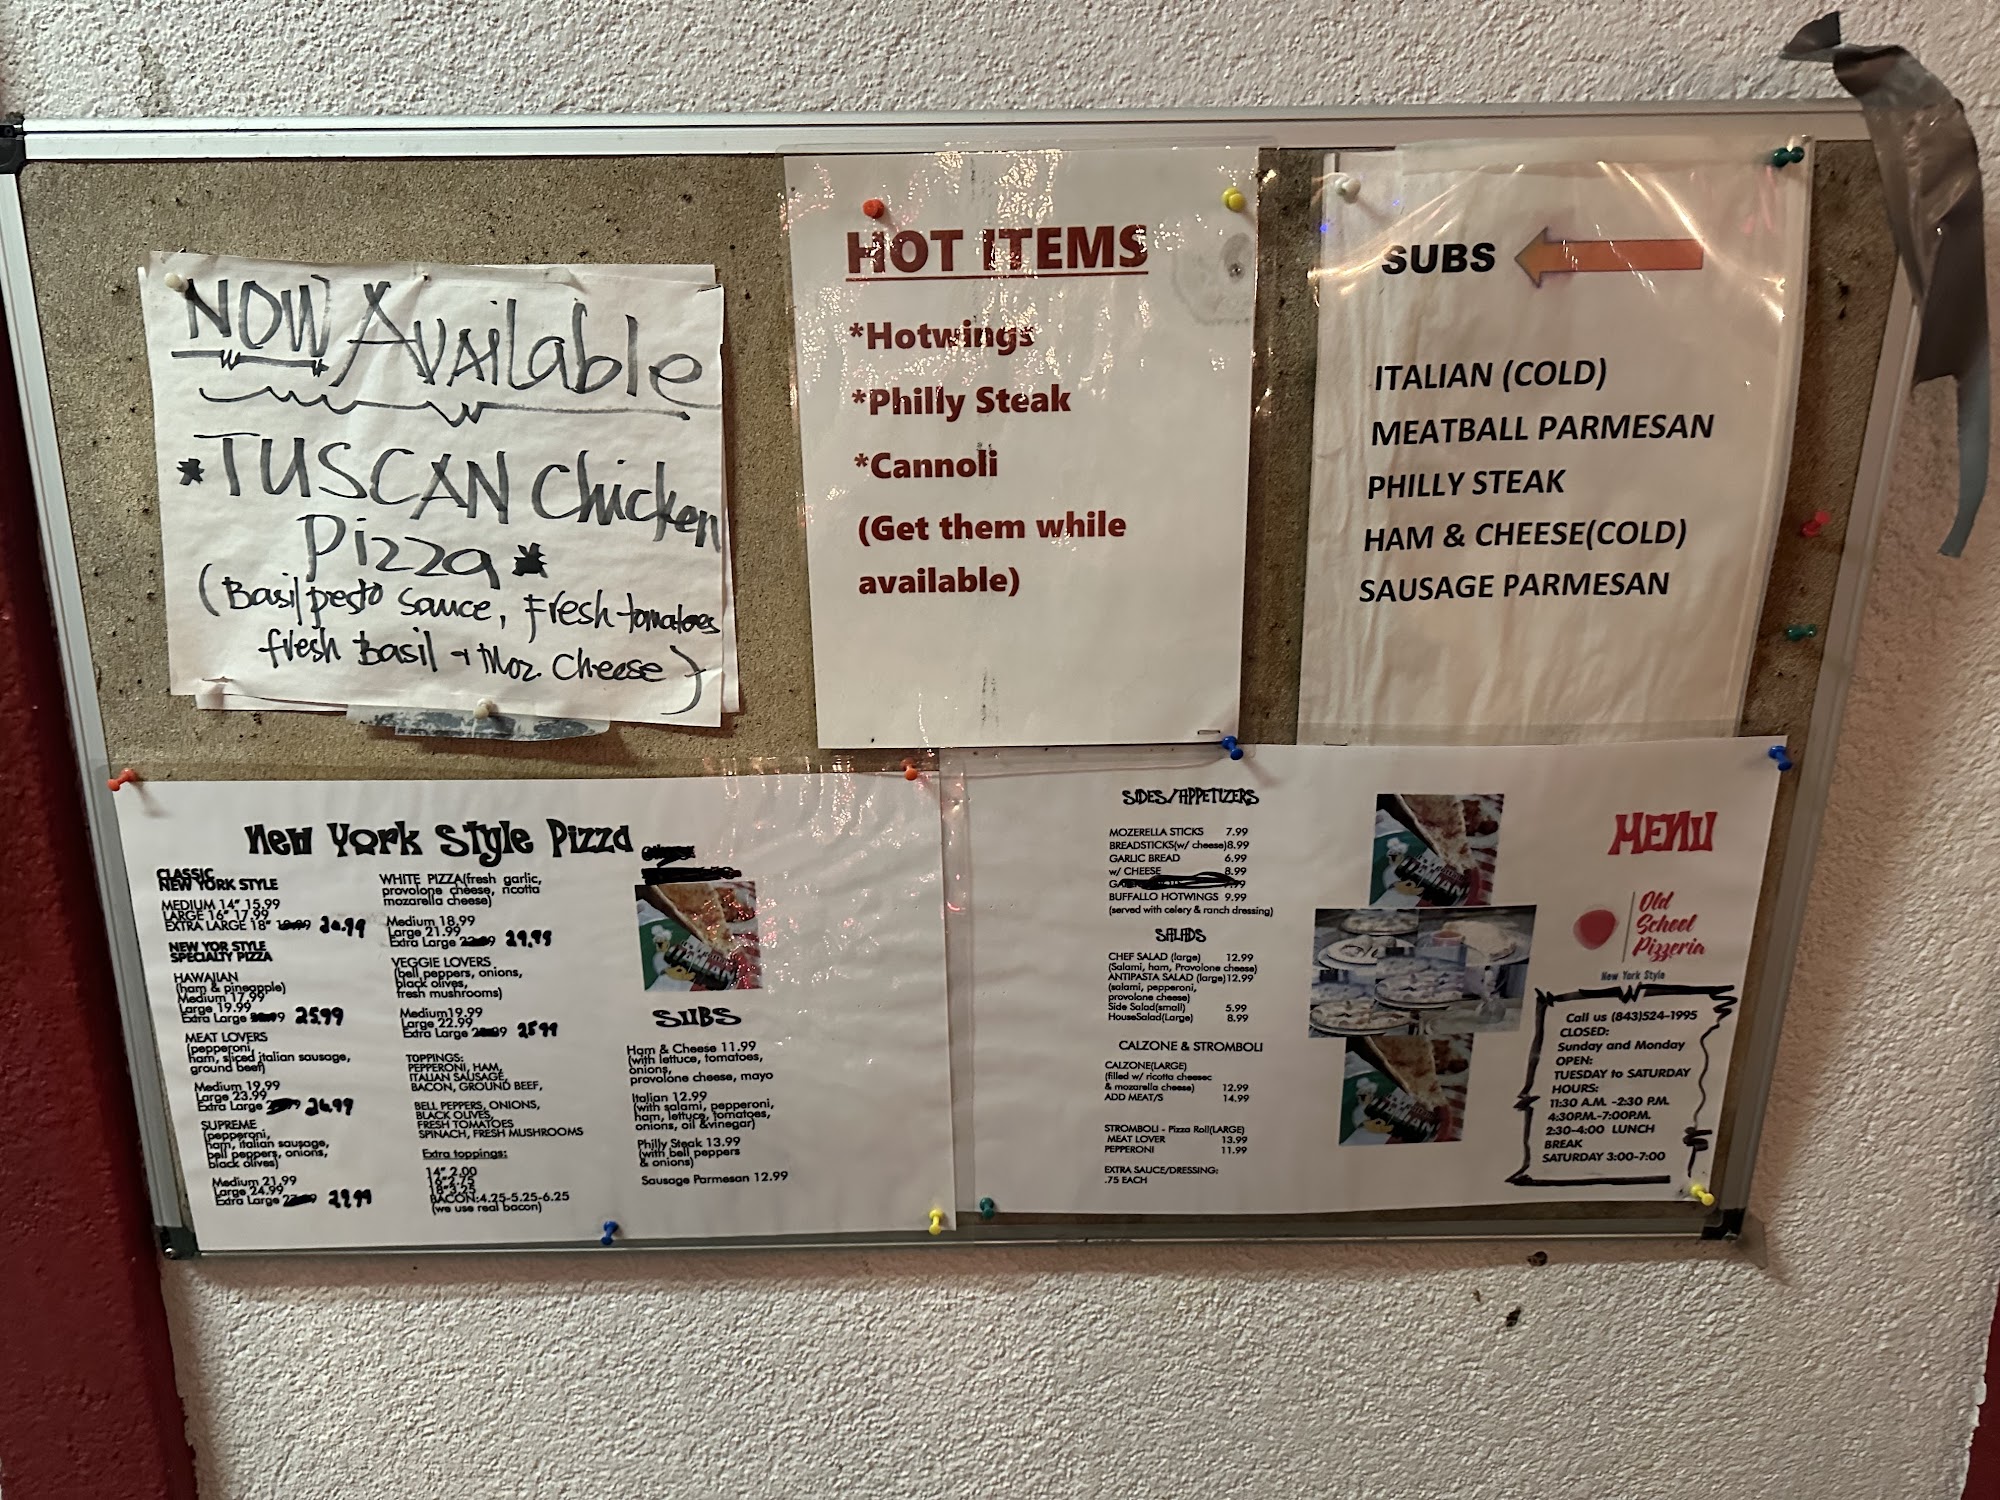 NOW Available
*TUSCAN Chicken
Pizza*
(Basil pesto sauce, Fresh tomatoes
fresh Basil + Moz. Cheese)
HOT ITEMS
*Hotwings
*Philly Steak
*Cannoli
(Get them while
available)
SUBS
ITALIAN (COLD)
MEATBALL PARMESAN
PHILLY STEAK
HAM & CHEESE(COLD)
SAUSAGE PARMESAN
New York Style Pizza
CLASSIC
NEW YORK STYLE
MEDIUM 14" 15.99
LARGE 16" 17.99
EXTRA LARGE 18"
NEW YOR STYLE
SPECIALTY PIZZA
HAWAIIAN
(ham & pineapple)
Medium 17.99
Large 19.99
Extra Large 25.99
MEAT LOVERS
(pepperoni,
ham, sliced italian sausage,
ground beef)
Medium 19.99
Large 23.99
Extra Large 26.99
SUPREME
(pepperoni,
ham, italian sausage,
bell peppers, onions,
black olives)
Medium 21.99
Large 24.99
Extra Large
WHITE PIZZA(fresh garlic,
provolone cheese, ricotta
mozarella cheese)
Medium 18.99
Large 21.99
Extra Large
VEGGIE LOVERS
(bell peppers, onions,
black olives,
fresh mushrooms)
Medium19.99
Large 22.99
Extra Large 25.99
TOPPINGS:
PEPPERONI, HAM,
ITALIAN SAUSAGE,
BACON, GROUND BEEF,
BELL PEPPERS, ONIONS,
BLACK OLIVES,
FRESH TOMATOES
SPINACH, FRESH MUSHROOMS
Extra toppings:
14" 2.00
16"2.75
18"3.25
BACON:4.25-5.25-6.25
(we use real bacon)
SUBS
Ham & Cheese 11.99
(with lettuce, tomatoes,
onions,
provolone cheese, mayo
Italian 12.99
(with salami, pepperoni,
ham, lettuce, tomatoes,
onions, oil &vinegar)
Philly Steak 13.99
(with bell peppers
& onions)
Sausage Parmesan 12.99
SIDES/APPETIZERS
MOZERELLA STICKS 7.99
BREADSTICKS(w/ cheese)8.99
GARLIC BREAD 6.99
w/ CHEESE 8.99
BUFFALO HOTWINGS 9.99
(served with celery & ranch dressing)
SALADS
CHEF SALAD (large) 12.99
(Salami, ham, Provolone cheese)
ANTIPASTA SALAD (large)12.99
(salami, pepperoni,
provolone cheese)
Side Salad(small) 5.99
HouseSalad(Large) 8.99
CALZONE & STROMBOLI
CALZONE(LARGE)
(filled w/ ricotta cheesec
& mozarella cheese) 12.99
ADD MEAT/S 14.99
STROMBOLI - Pizza Roll(LARGE)
MEAT LOVER 13.99
PEPPERONI 11.99
EXTRA SAUCE/DRESSING:
.75 EACH
MENU
Old
School
Pizzeria
New York Style
Call us (843)524-1995
CLOSED:
Sunday and Monday
OPEN:
TUESDAY to SATURDAY
HOURS:
11:30 A.M. -2:30 P.M.
4:30P.M.-7:00P.M.
2:30-4:00 LUNCH
BREAK
SATURDAY 3:00-7:00